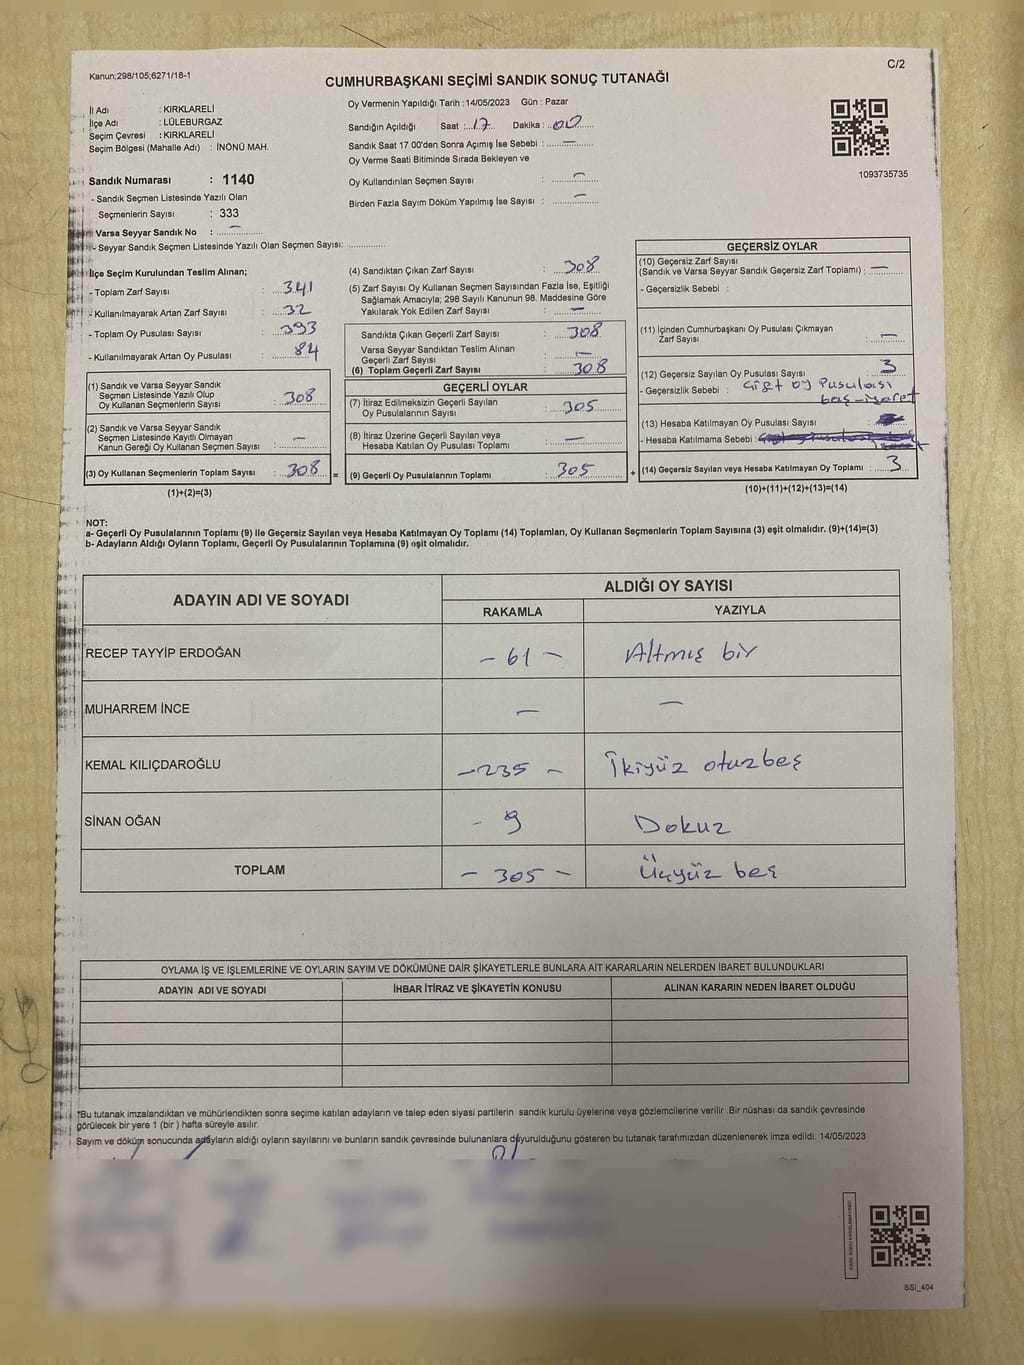 Kanun;298/105;6271/18-1
C/2
CUMHURBAŞKANI SEÇİMİ SANDIK SONUÇ TUTANAĞI
İl Adı : KIRKLARELİ
İlçe Adı : LÜLEBURGAZ
Seçim Çevresi : KIRKLARELİ
Seçim Bölgesi (Mahalle Adı) : İNÖNÜ MAH.
Sandık Numarası : 1140
- Sandık Seçmen Listesinde Yazılı Olan
Seçmenlerin Sayısı : 333
Varsa Seyyar Sandık No : —
- Seyyar Sandık Seçmen Listesinde Yazılı Olan Seçmen Sayısı: ............
Oy Vermenin Yapıldığı Tarih :14/05/2023 Gün : Pazar
Sandığın Açıldığı Saat : 17 Dakika : 00
Sandık Saat 17 00'den Sonra Açımış İse Sebebi : —
Oy Verme Saati Bitiminde Sırada Bekleyen ve
Oy Kullandırılan Seçmen Sayısı : —
Birden Fazla Sayım Döküm Yapılmış İse Sayısı : —
1093735735
İlçe Seçim Kurulundan Teslim Alınan;
- Toplam Zarf Sayısı : 341
- Kullanılmayarak Artan Zarf Sayısı : 32
- Toplam Oy Pusulası Sayısı : 393
- Kullanılmayarak Artan Oy Pusulası : 84
(1) Sandık ve Varsa Seyyar Sandık
Seçmen Listesinde Yazılı Olup
Oy Kullanan Seçmenlerin Sayısı : 308
(2) Varsa Sandık ve Seyyar Sandık
Seçmen Listesinde Kayıtlı Olmayan
Kanun Gereği Oy Kullanan Seçmen Sayısı : —
(3) Oy Kullanan Seçmenlerin Toplam Sayısı : 308 =
(1)+(2)=(3)
(4) Sandıktan Çıkan Zarf Sayısı : 308
(5) Zarf Sayısı Oy Kullanan Seçmen Sayısından Fazla İse, Eşitliği
Sağlamak Amacıyla; 298 Sayılı Kanunun 98. Maddesine Göre
Yakılarak Yok Edilen Zarf Sayısı : —
Sandıkta Çıkan Geçerli Zarf Sayısı : 308
Varsa Seyyar Sandıktan Teslim Alınan
Geçerli Zarf Sayısı : —
(6) Toplam Geçerli Zarf Sayısı : 308
GEÇERLİ OYLAR
(7) İtiraz Edilmeksizin Geçerli Sayılan
Oy Pusulalarının Sayısı : 305
(8) İtiraz Üzerine Geçerli Sayılan veya
Hesaba Katılan Oy Pusulası Toplamı : —
(9) Geçerli Oy Pusulalarının Toplamı : 305 +
GEÇERSİZ OYLAR
(10) Geçersiz Zarf Sayısı
(Sandık ve Varsa Seyyar Sandık Geçersiz Zarf Toplamı) : —
- Geçersizlik Sebebi :
(11) İçinden Cumhurbaşkanı Oy Pusulası Çıkmayan
Zarf Sayısı : —
(12) Geçersiz Sayılan Oy Pusulası Sayısı : 3
- Geçersizlik Sebebi : Çift oy Pusulası
boş-işaret
(13) Hesaba Katılmayan Oy Pusulası Sayısı :
- Hesaba Katılmama Sebebi :
(14) Geçersiz Sayılan veya Hesaba Katılmayan Oy Toplamı : 3
(10)+(11)+(12)+(13)=(14)
NOT:
a- Geçerli Oy Pusulalarının Toplamı (9) ile Geçersiz Sayılan veya Hesaba Katılmayan Oy Toplamı (14) Toplamları, Oy Kullanan Seçmenlerin Toplam Sayısına (3) eşit olmalıdır. (9)+(14)=(3)
b- Adayların Aldığı Oyların Toplamı, Geçerli Oy Pusulalarının Toplamına (9) eşit olmalıdır.
ADAYIN ADI VE SOYADI
ALDIĞI OY SAYISI
RAKAMLA YAZIYLA
RECEP TAYYİP ERDOĞAN - 61 - Altmış bir
MUHARREM İNCE — —
KEMAL KILIÇDAROĞLU - 235 - İkiyüz otuzbeş
SİNAN OĞAN - 9 Dokuz
TOPLAM - 305 - Üçyüz beş
OYLAMA İŞ VE İŞLEMLERİNE VE OYLARIN SAYIM VE DÖKÜMÜNE DAİR ŞİKAYETLERLE BUNLARA AİT KARARLARIN NELERDEN İBARET BULUNDUKLARI
ADAYIN ADI VE SOYADI İHBAR İTİRAZ VE ŞİKAYETİN KONUSU ALINAN KARARIN NEDEN İBARET OLDUĞU
*Bu tutanak imzalandıktan ve mühürlendikten sonra seçime katılan adayların ve talep eden siyasi partilerin sandık kurulu üyelerine veya gözlemcilerine verilir .Bir nüshası da sandık çevresinde
görülecek bir yere 1 (bir ) hafta süreyle asılır.
Sayım ve döküm sonucunda adayların aldığı oyların sayılarını ve bunların sandık çevresinde bulunanlara duyurulduğunu gösteren bu tutanak tarafımızdan düzenlenerek imza edildi. 14/05/2023
SSI_404